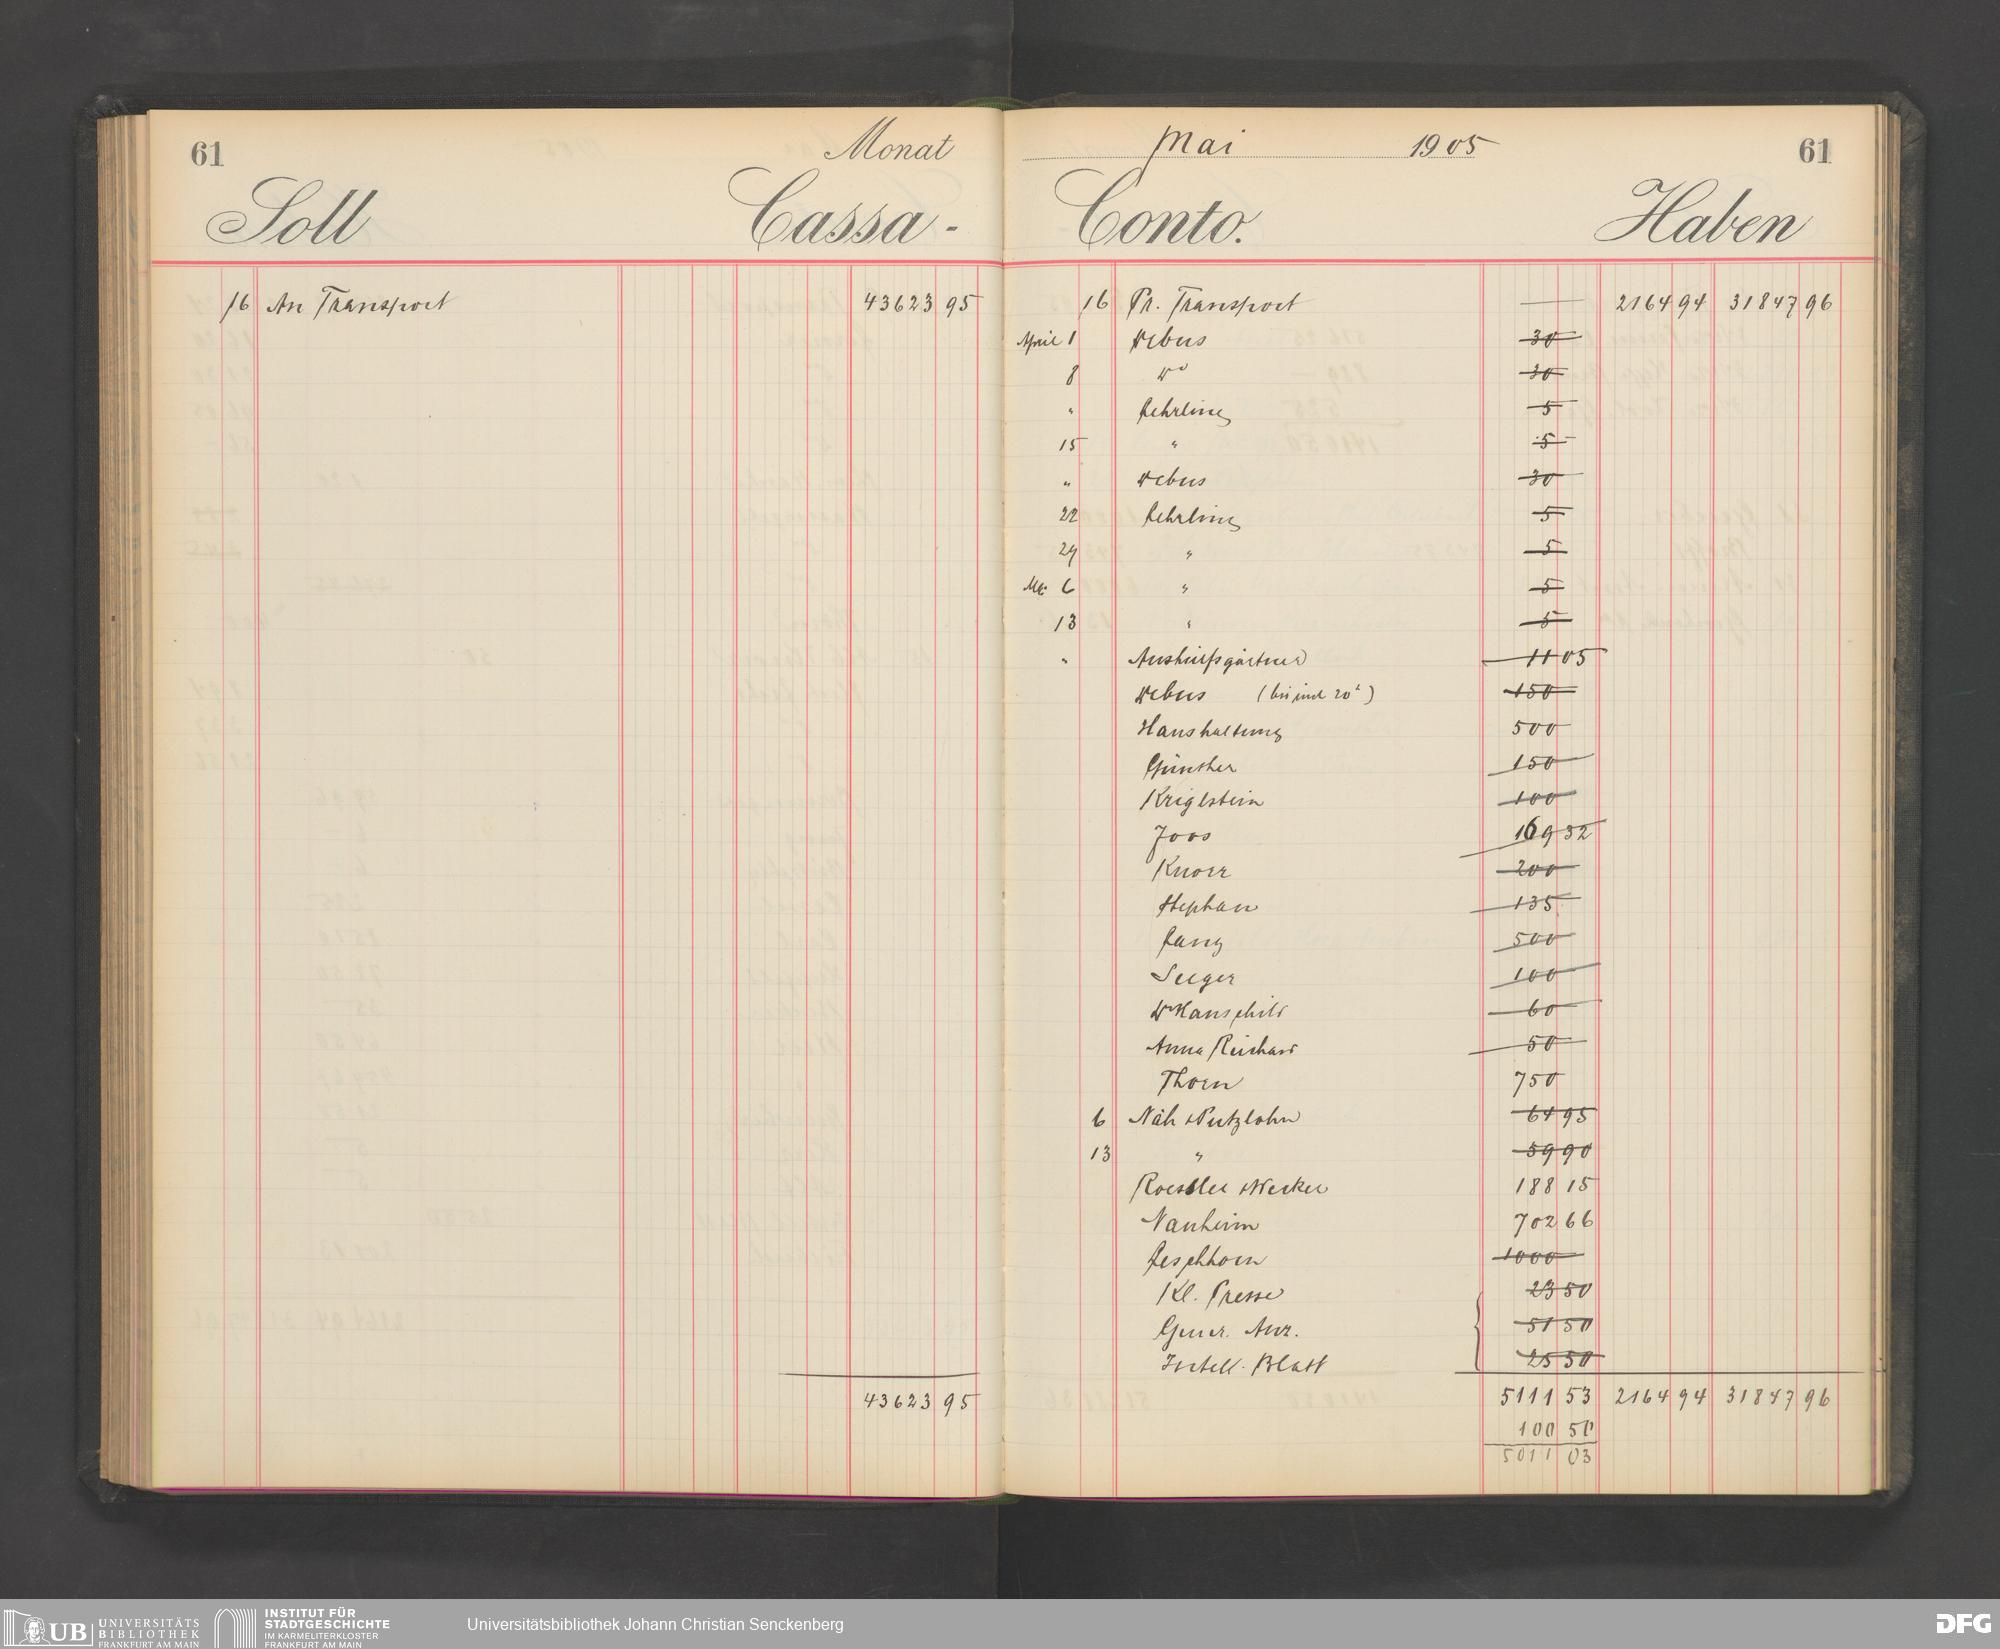 61 Monat Mai 1905 61
Soll Cassa- Conto. Haben
16 An Transport 43623 95
16 Pr. Transport — 2164 94 31847 96
April 1 Debus 30
8 do 30
" Lehrling 5
15 " 5
" Debus 30
22 Lehrling 5
29 " 5
Mai 6 " 5
13 " 5
" Aushülfsgärtner 11 05
Debus (bis incl 20t) 150
Haushaltung 500
Günther 150
Kriglstein 100
Joos 169 32
Knorr 200
Stephan 135
Lang 500
Seeger 100
60
Anna Reichard 50
Thorn 750
6 Näh & Putzlohn 64 95
13 " 59 90
Roessler & Necker 188 15
Nauheim 702 66
Leschhorn 1000
Kl. Presse 23 50
Gener. Anz. 51 50
Intell. Blatt 25 50
43623 95
5111 53 2164 94 31847 96
100 50
5011 03
UB UNIVERSITÄTS
BIBLIOTHEK
FRANKFURT AM MAIN
INSTITUT FÜR
STADTGESCHICHTE
IM KARMELITERKLOSTER
FRANKFURT AM MAIN
Universitätsbibliothek Johann Christian Senckenberg
DFG